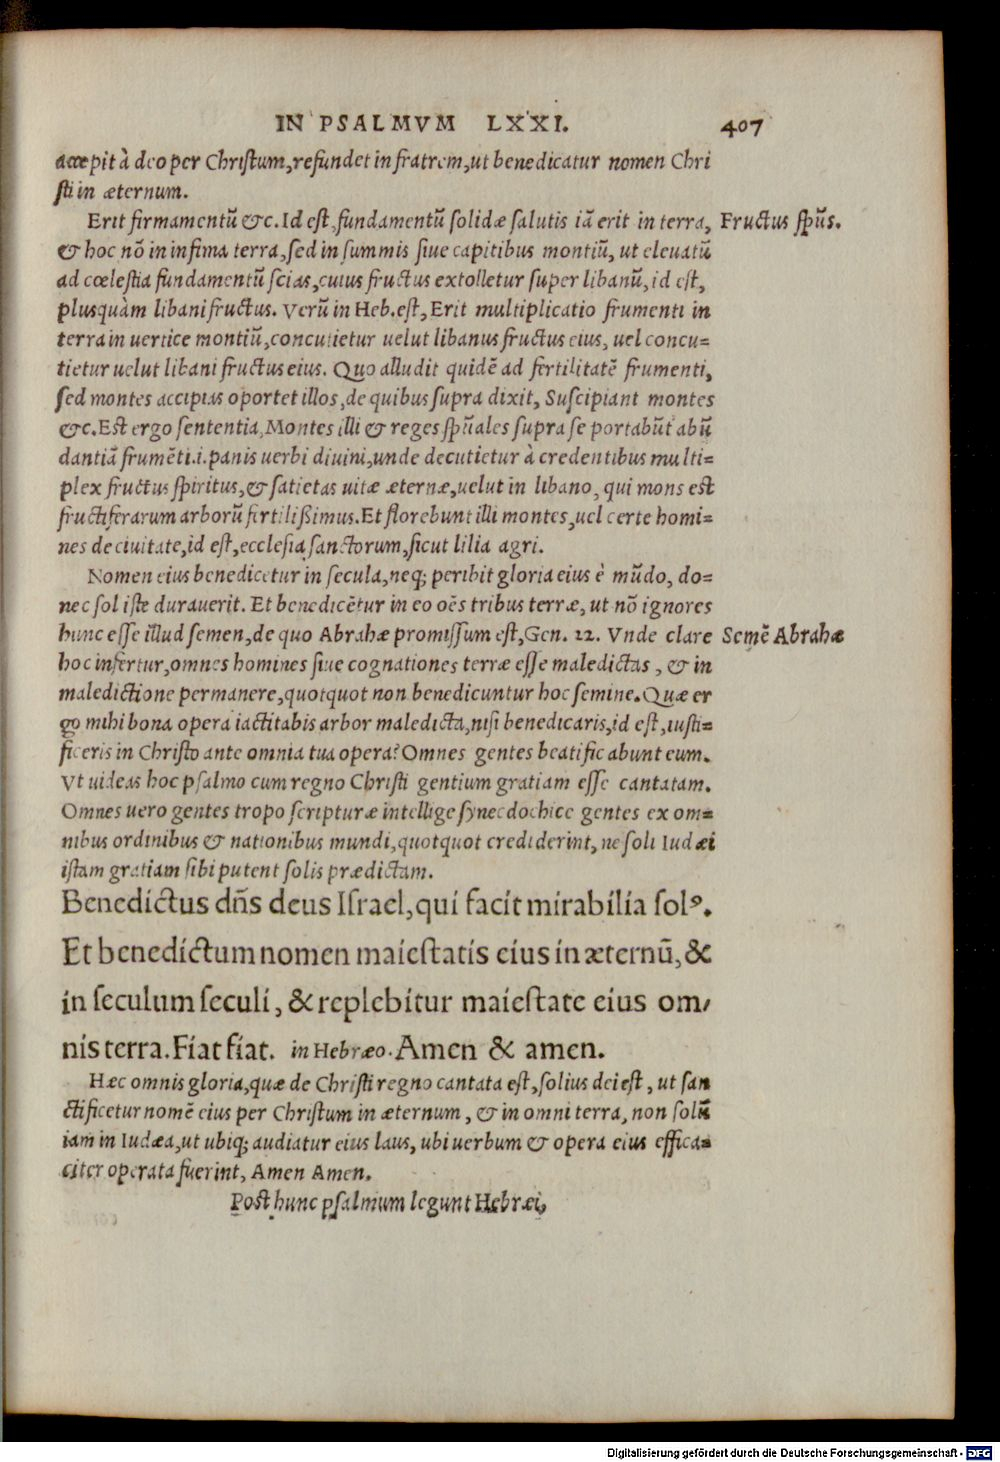 IN PSALMVM LXXI. 407
accepit à deo per Christum, refundet in fratrem, ut benedicatur nomen Chri
sti in æternum.
Erit firmamentũ &c. Id est, fundamentũ solidæ salutis iã erit in terra, Fructus sp̃us.
& hoc nõ in infima terra, sed in summis siue capitibus montiũ, ut eleuatũ
ad cœlestia fundamentũ scias, cuius fructus extolletur super libanũ, id est,
plusquàm libani fructus. Verũ in Heb. est, Erit multiplicatio frumenti in
terra in uertice montiũ, concutietur uelut libanus fructus eius, uel concu=
tietur uelut libani fructus eius. Quo alludit quidẽ ad fertilitatẽ frumenti,
sed montes accipias oportet illos, de quibus supra dixit, Suscipiant montes
&c. Est ergo sententia, Montes illi & reges sp̃uales supra se portabũt abũ
dantiã frumẽti.i. panis uerbi diuini, unde decutietur à credentibus multi=
plex fructus spiritus, & satietas uitæ æternæ, uelut in libano, qui mons est
fructiferarum arborũ fertilißimus. Et florebunt illi montes, uel certe homi=
nes de ciuitate, id est, ecclesia sanctorum, sicut lilia agri.
Nomen eius benedicetur in secula, neq; peribit gloria eius è mũdo, do=
nec sol iste durauerit. Et benedicẽtur in eo oẽs tribus terræ, ut nõ ignores
hunc esse illud semen, de quo Abrahæ promissum est, Gen. 22. Vnde clare Semẽ Abrahæ
hoc infertur, omnes homines siue cognationes terræ esse maledictas, & in
maledictione permanere, quotquot non benedicuntur hoc semine. Quæ er
go mihi bona opera iactitabis arbor maledicta, nisi benedicaris, id est, iusti=
ficeris in Christo ante omnia tua opera? Omnes gentes beatificabunt eum.
Vt uideas hoc psalmo cum regno Christi gentium gratiam esse cantatam.
Omnes uero gentes tropo scripturæ intellige synecdochice gentes ex om=
nibus ordinibus & nationibus mundi, quotquot crediderint, ne soli Iudæi
istam gratiam sibi putent solis prædictam.
Benedictus dñs deus Israel, qui facit mirabilia solꝰ.
Et benedictum nomen maiestatis eius in æternũ, &
in seculum seculi, & replebitur maiestate eius om/
nis terra. Fiat fiat. in Hebræo. Amen & amen.
Hæc omnis gloria, quæ de Christi regno cantata est, solius dei est, ut san
ctificetur nomẽ eius per Christum in æternum, & in omni terra, non solũ
iam in Iudæa, ut ubiq; audiatur eius laus, ubi uerbum & opera eius effica=
citer operata fuerint, Amen Amen.
Post hunc psalmum legunt Hebræi,
Digitalisierung gefördert durch die Deutsche Forschungsgemeinschaft - DFG